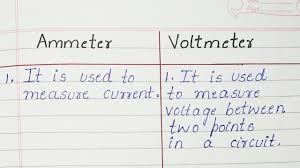 Ammeter
Voltmeter
1. It is used to
measure current.
1. It is used
to measure
voltage between
two points
in a circuit.